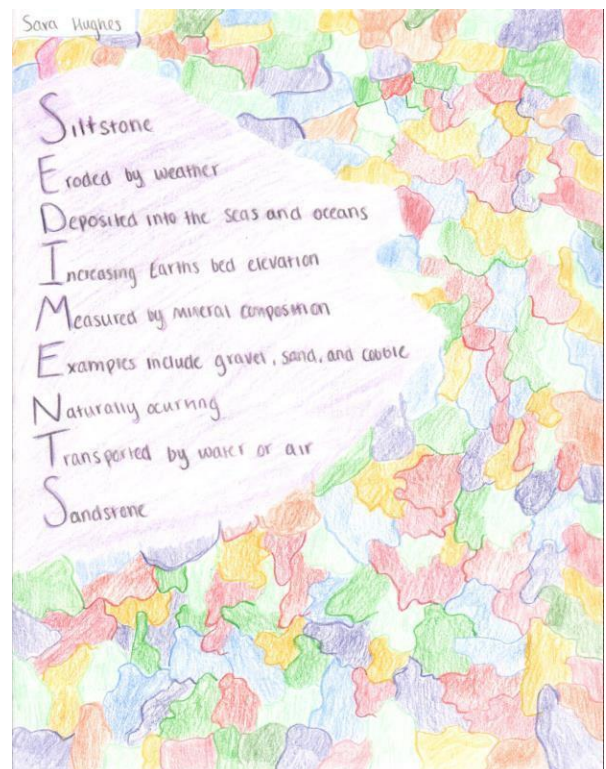 Sara Hughes
Siltstone
Eroded by weather
Deposited into the seas and oceans
Increasing Earths bed elevation
Measured by mineral composition
Examples include gravel, sand, and cobble
Naturally ocurring
Transported by water or air
Sandstone